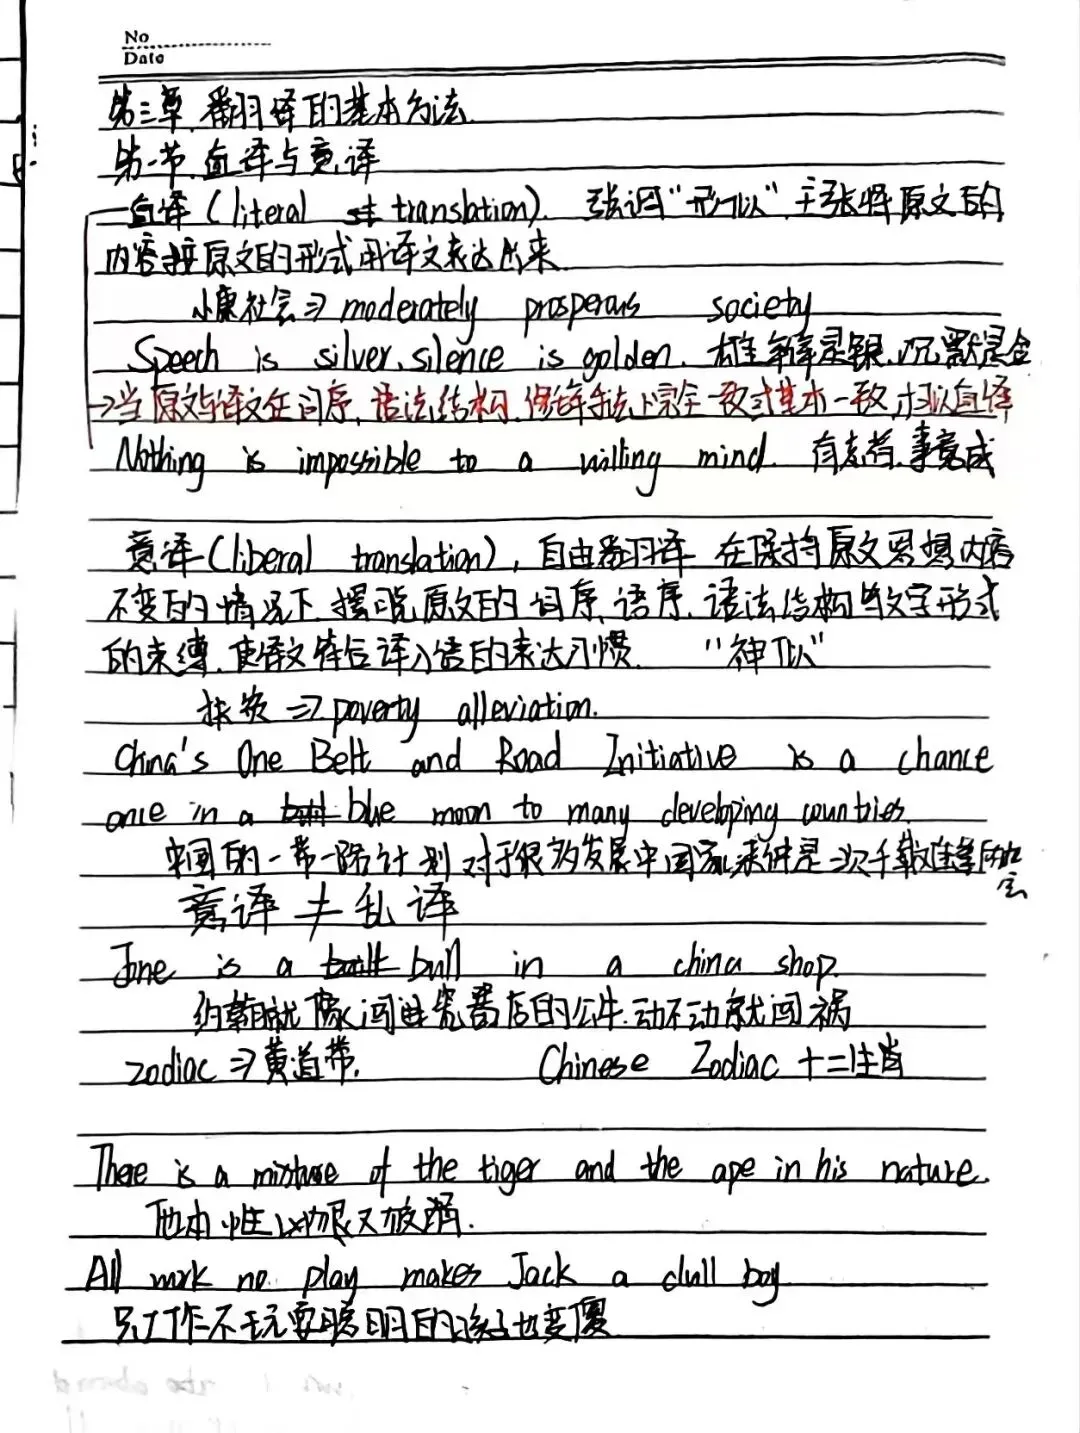 No
Date
第三章 翻译的基本方法
第一节 直译与意译
直译 (literal translation). 强调"形似" 主张将原文的
内容按原文的形式用译文表达出来
小康社会 ⇒ moderately prosperous society
Speech is silver, silence is golden. 雄辩是银, 沉默是金
→当原文与译文在词序, 语法结构, 修辞手法上完全一致或基本一致, 才可以直译
Nothing is impossible to a willing mind. 有志者, 事竟成
意译 (liberal translation), 自由翻译 在保持原文思想内容
不变的情况下, 摆脱原文的词序, 语序, 语法结构与文字形式
的束缚, 使译文符合译入语的表达习惯. "神似"
扶贫 ⇒ poverty alleviation.
China's One Belt and Road Initiative is a chance
once in a blue moon to many developing countries.
中国的一带一路计划对于很多发展中国家来讲是一次千载难逢的机会
意译 ≠ 乱译
Jone is a bull in a china shop.
约翰就像闯进瓷器店的公牛, 动不动就闯祸
zodiac ⇒ 黄道带. Chinese Zodiac 十二生肖
There is a mixture of the tiger and the ape in his nature.
他本性凶狠又狡猾.
All work no play makes Jack a dull boy
只工作不玩耍聪明的孩子也变傻